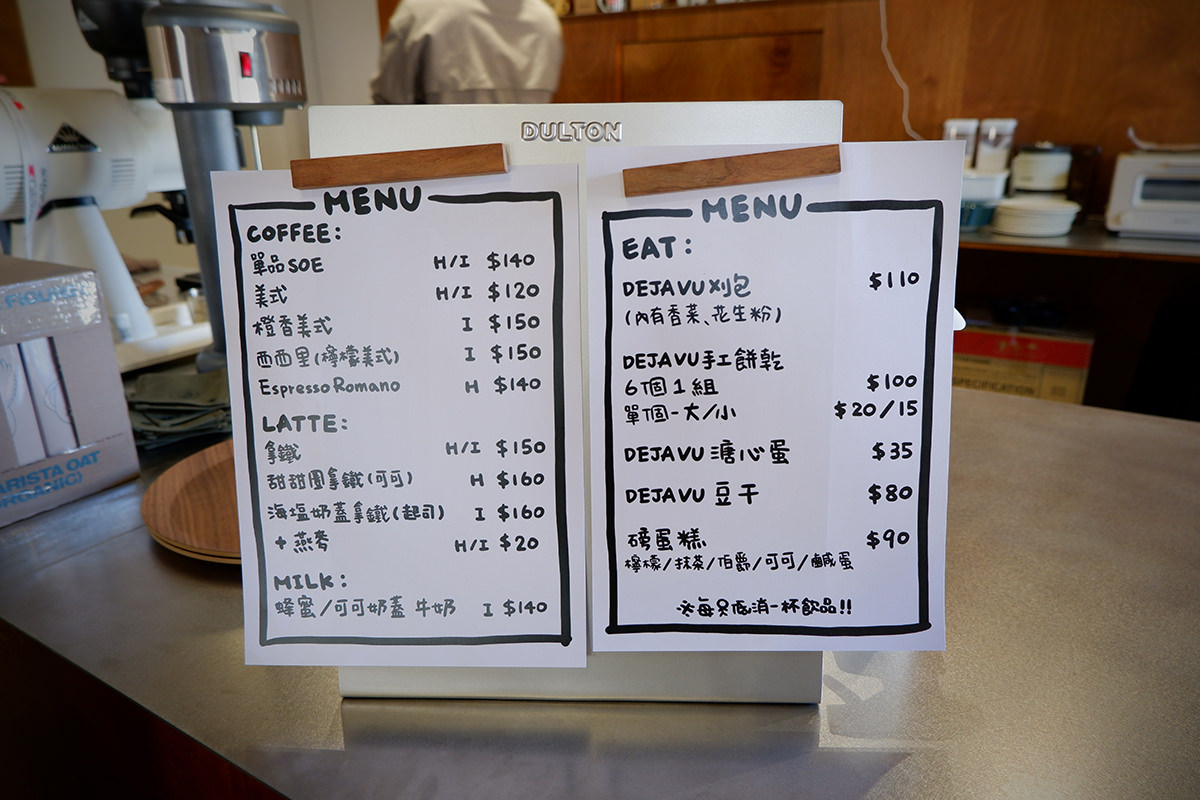 DULTON
MENU
COFFEE:
單品SOE H/I $140
美式 H/I $120
橙香美式 I $150
西西里(檸檬美式) I $150
Espresso Romano H $140
LATTE:
拿鐵 H/I $150
甜甜圈拿鐵(可可) H $160
海塩奶蓋拿鐵(起司) I $160
+ 燕麥 H/I $20
MILK:
蜂蜜/可可奶蓋 牛奶 I $140
MENU
EAT:
DEJAVU刈包 $110
(內有香菜、花生粉)
DEJAVU手工餅乾
6個1組 $100
單個-大/小 $20/15
DEJAVU 溏心蛋 $35
DEJAVU 豆干 $80
磅蛋糕 $90
檸檬/抹茶/伯爵/可可/鹹蛋
※每人低消一杯飲品!!
ARISTA OAT
ORGANIC)
SPECIFICATION